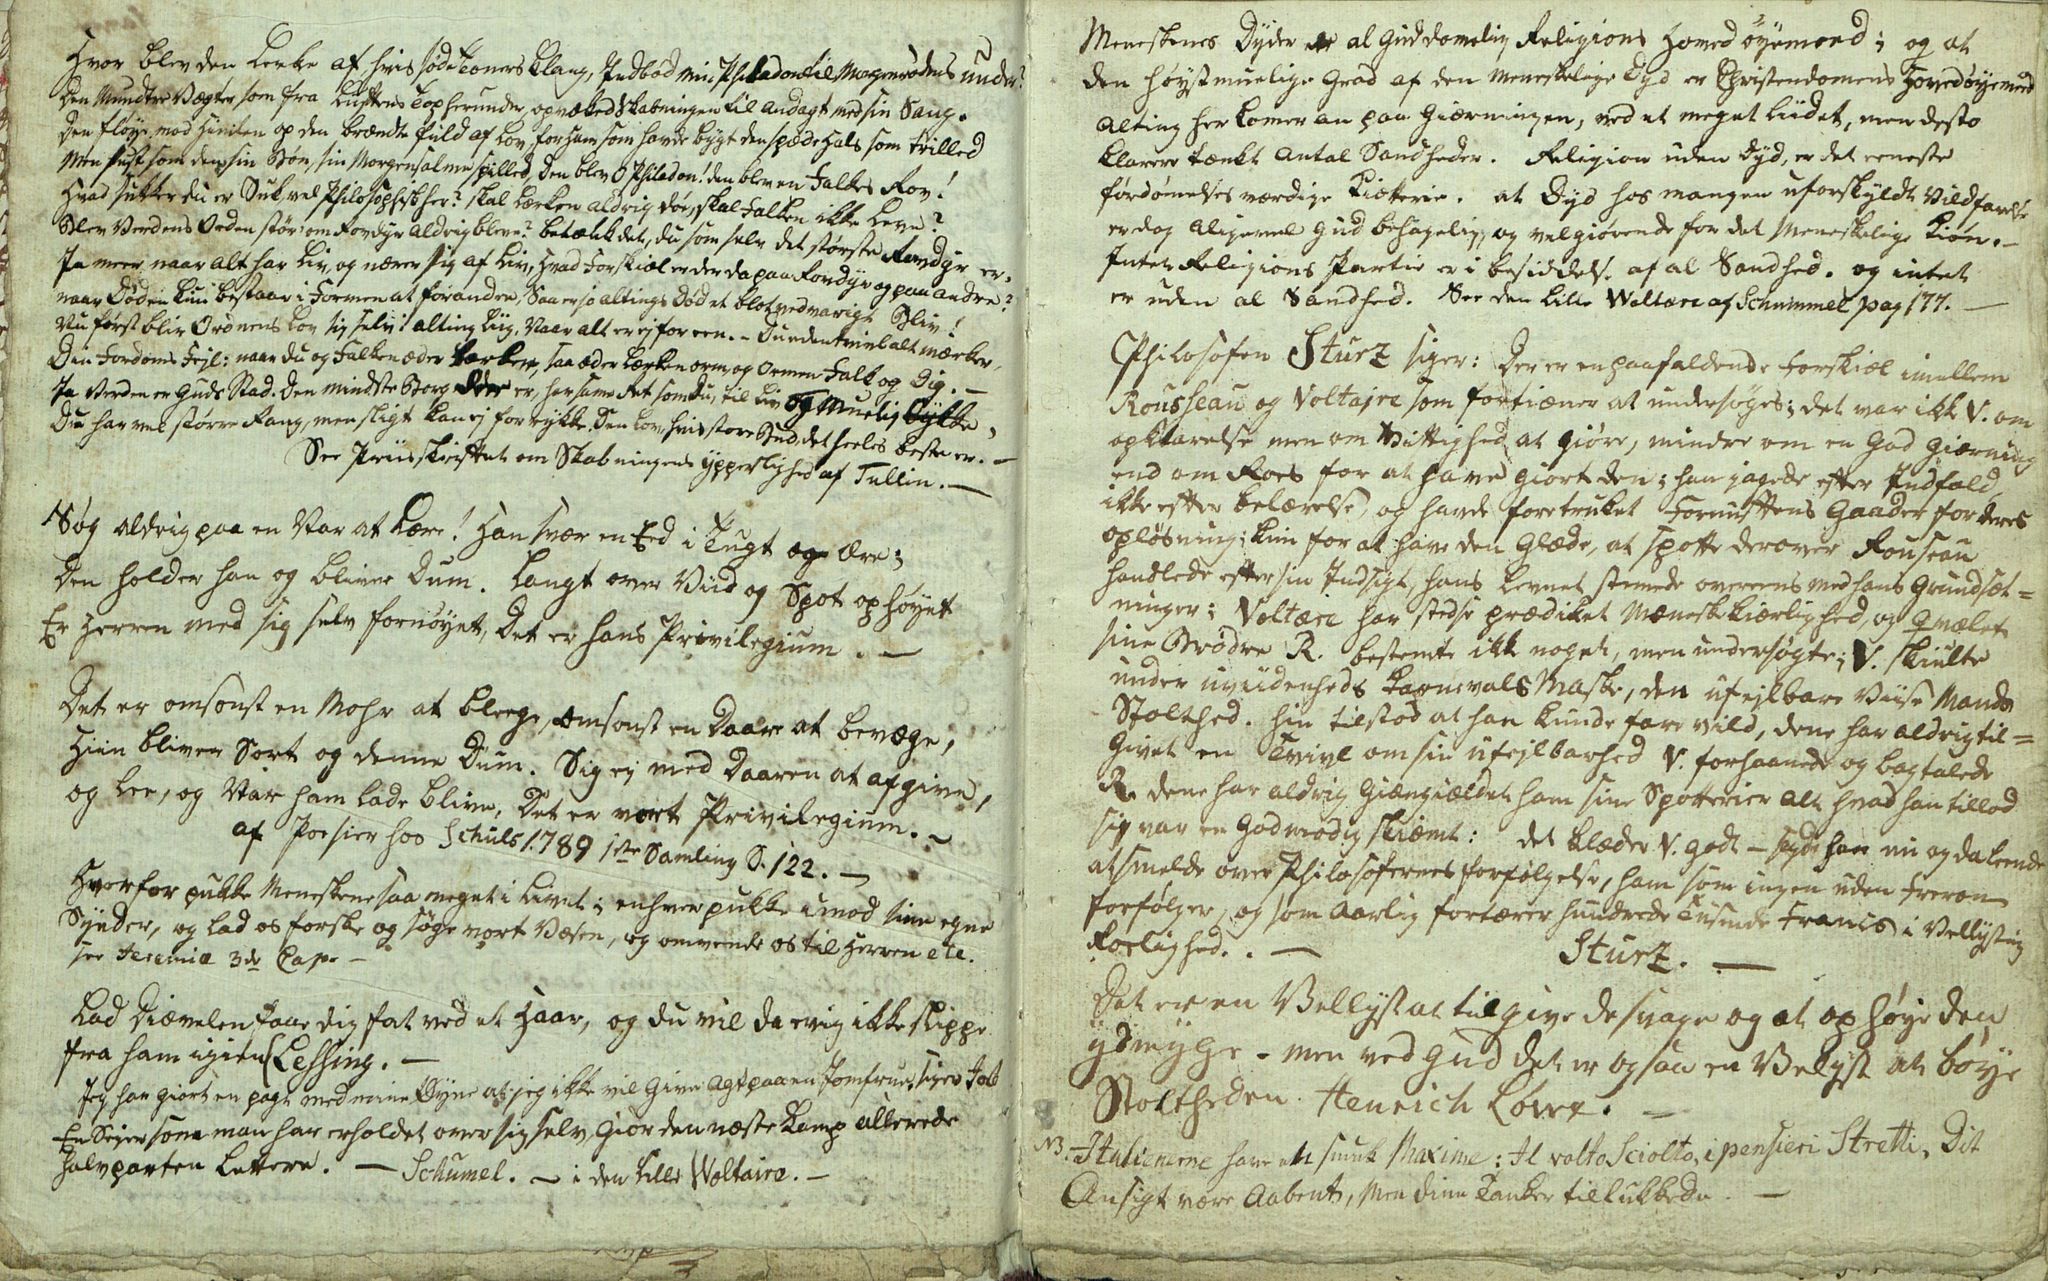 Hvor blev den Lerke af hvis søde Toners Klang, Indbød min Philadon til Morgenrødens under?
Den Mundtre Vægter, som fra Luftens Top herunder, opvaked Skabningen til andagt med sin Sang.
Den fløye mod Himlen op den brændte fuld af Lov, for ham som havde bygt den spæde Hals som trilled
Men just som den sin Bøn, sin Morgensalme spilled, Den blev O Philadon! den blev en Falkes Rov!
Hvad sukker du er Suk vel Philosophisk her? skal Lærken aldrig døe, skal Falken ikke leve?
Blev Verdens Orden større om Rovdyr aldrig bleve? betænk det, du som selv det største Rovdyr er,
Ja meer naar alt har Liv, og nærer sig af Liv, hvad Forskiæl er der da paa Rovdyr og paa andre?
naar Døden kun bestaar i Formen at forandre, Saa er jo altings Død et blot vedvarigt Bliv!
Nu først bliv Ordnens Lov sig selv i alting Liig, Naar alt er ej for een. - Du uden tvivl alt mærker,
Din Fordoms Fejl: naar du og Falken æder Lærker, saa æder Lærken orm, og Ormen Falk og Dig. -
Ja Verden er Guds Stad. Den mindste Borger der er, har samme Ret som Du, til Liv og Muelig Lykke,
Du har vel større Rang, men sligt kan ej forrykke, Den Lov, hvis store Bud, det heeles beste er. -
See Priisskriftet om Skabningens ypperlighed af Tullin. -
Søg aldrig paa en Nar at Lære! Han svær en Eed i Tugt og Ære;
Den holder han og bliver Dum. Langt over Viid og Spot ophøyet
Er Herren med sig selv fornøyet, Det er hans Privilegium. -
Det er omsonst en Mohr at bleege, omsonst en Daare at bevæge,
Hiin bliver Sort og denne Dum. Sig ej med Daaren at afgive,
og lee, og Nar ham lade blive, Det er vort Privilegium. -
af Poesier hos Schuls 1789 1ste Samling S. 122. -
Hvorfor pukke Meneskene saa meget i Livet; enhver pukke imod sine egne
Synder, og lad os forske og søge vort Væsen, og omvende os til Herren etc.
see Jeremiæ 3de Cap. -
Lad Diævelen faae dig fat ved et Haar, og du vil da evig ikke slippe
fra ham igien (Lessing. -
Jeg har giort en pagt med mine Øyne at jeg ikke vil give agt paa en Jomfrue, siger Job
En Sejer som man har erholdet over sig selv, Giør den næste Kamp allerede
halvparten Lettere. - Schumel. - i den Lille Woltaire. -
Meneskenes Dyder er al Guddomelig Religions Hoved øyemeed; og at
den høyst muelige Grad af den Meneskelige Dyd er Christendomens Hovedøyemeed
Alting her komer an paa Giærningen, ved et meget Lidet, men desto
klarere tænkt Antal Sandheder. Religion uden Dyd, er det eeneste
fordømelses værdige Kiætterie. at Dyd hos mangen uforskyldt Vildfarelse
er dog aligevel Gud behagelig, og velgiørende for det Meneskelige Kiøn. -
Intet Religions Partie er i besiddelse af al Sandhed. og intet
er uden al Sandhed. See den Lille Woltære af Schummel pag 177. -
Philosofen Sturz siger: Der er en paafaldende Forskiæl imellem
Rousseau og Voltajre som fortiæner at undersøges; det var ikke V. om
opklarelse men om Vittighed at giøre, mindre om en God Giærning
end om Roes for at have giort den; han jagede efter Indfald,
ikke efter belærelse, og havde foretrukket Fornuftens Gaader for deres
opløsning; kun for at have den Glæde, at spotte derover Rouseau
handlede efter sin Indsigt, hans Levnet stemede overeens med hans Grundsæt=
ninger; Voltære har stedse prædiket Mæneskekiærlighed, og Qvælet
sine Brødre R. bestemte ikke noget, men undersøgte; V. skiulte
under uviidenheds Karnevals Maske, den ufejlbare Viise Mands
Stolthed. hin tilstod at han kunde fare vild, dene har aldrig til=
givet en Tvivl om sin ufejlbarhed V. forhaanede og bagtalede
R. dene har aldrig Giængiældet ham sine Spotterier alt hvad han tillod
sig var en Godmodig skiæmt: det klæder V. godt - sagde han nu og da leende
at smelde over Philosofernes forfølgelse, ham som ingen uden Freron
forfølger, og som Aarlig fortærer hundrede Tusinde Francs i Vellystig
Roelighed. . - Sturz. -
Det er en Vellyst at tilgive de svage og at ophøje den
ydmyge - men ved Gud det er ogsaa en Velyst at bøye
Stoltheden. Henrich Løwe. -
NB. - Italienerne have en smuk Maxime: Il volto Sciolto, i pensieri Stretti, Dit
Ansigt være Aabent, Men dine Tanker tillukkede. -